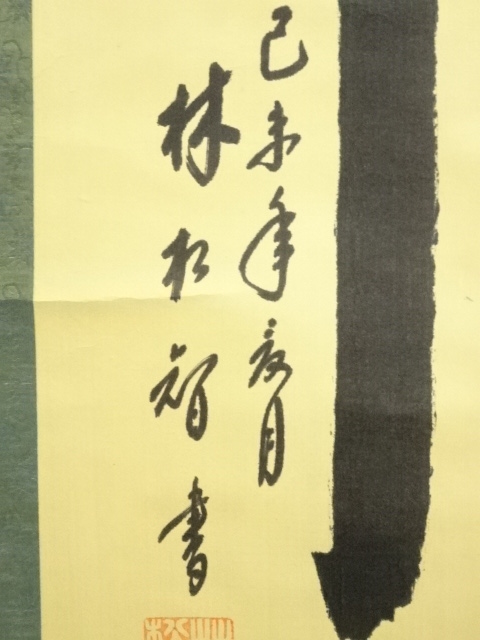 己未年夏月
林松智書